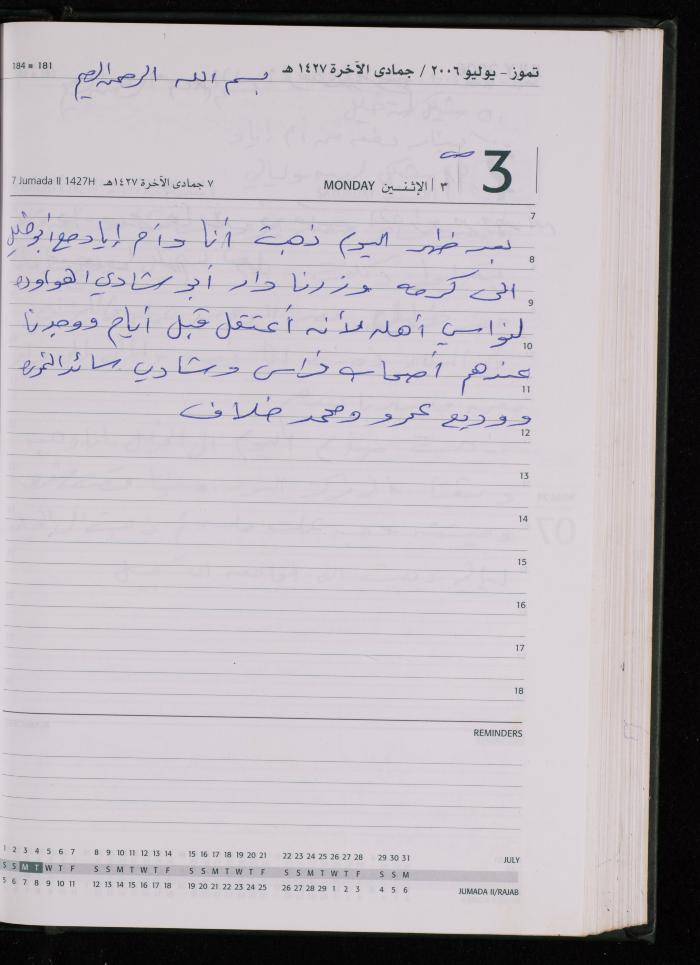 184 ■ 181
تموز - يوليو ٢٠٠٦ / جمادى الآخرة ١٤٢٧ هـ
بسم الله الرحمن الرحيم
7 Jumada II 1427H ٧ جمادى الآخرة ١٤٢٧هـ
MONDAY ٣ | الإثنـين
3
7
بعد ظهر اليوم ذهبت أنا وأم إياد مع أبو خليل
8
الى كرمه وزرنا دار أبو شادي
9
لنواسي أهله لأنه أعتقل قبل أيام ووجدنا
10
عندهم أصحاب فراس وشادي سائد
11
ووديع عمرو ومحمد خلاف
12
13
14
15
16
17
18
REMINDERS
1 2 3 4 5 6 7 8 9 10 11 12 13 14 15 16 17 18 19 20 21 22 23 24 25 26 27 28 29 30 31 JULY
S S M T W T F S S M T W T F S S M T W T F S S M T W T F S S M
5 6 7 8 9 10 11 12 13 14 15 16 17 18 19 20 21 22 23 24 25 26 27 28 29 1 2 3 4 5 6 JUMADA II/RAJAB